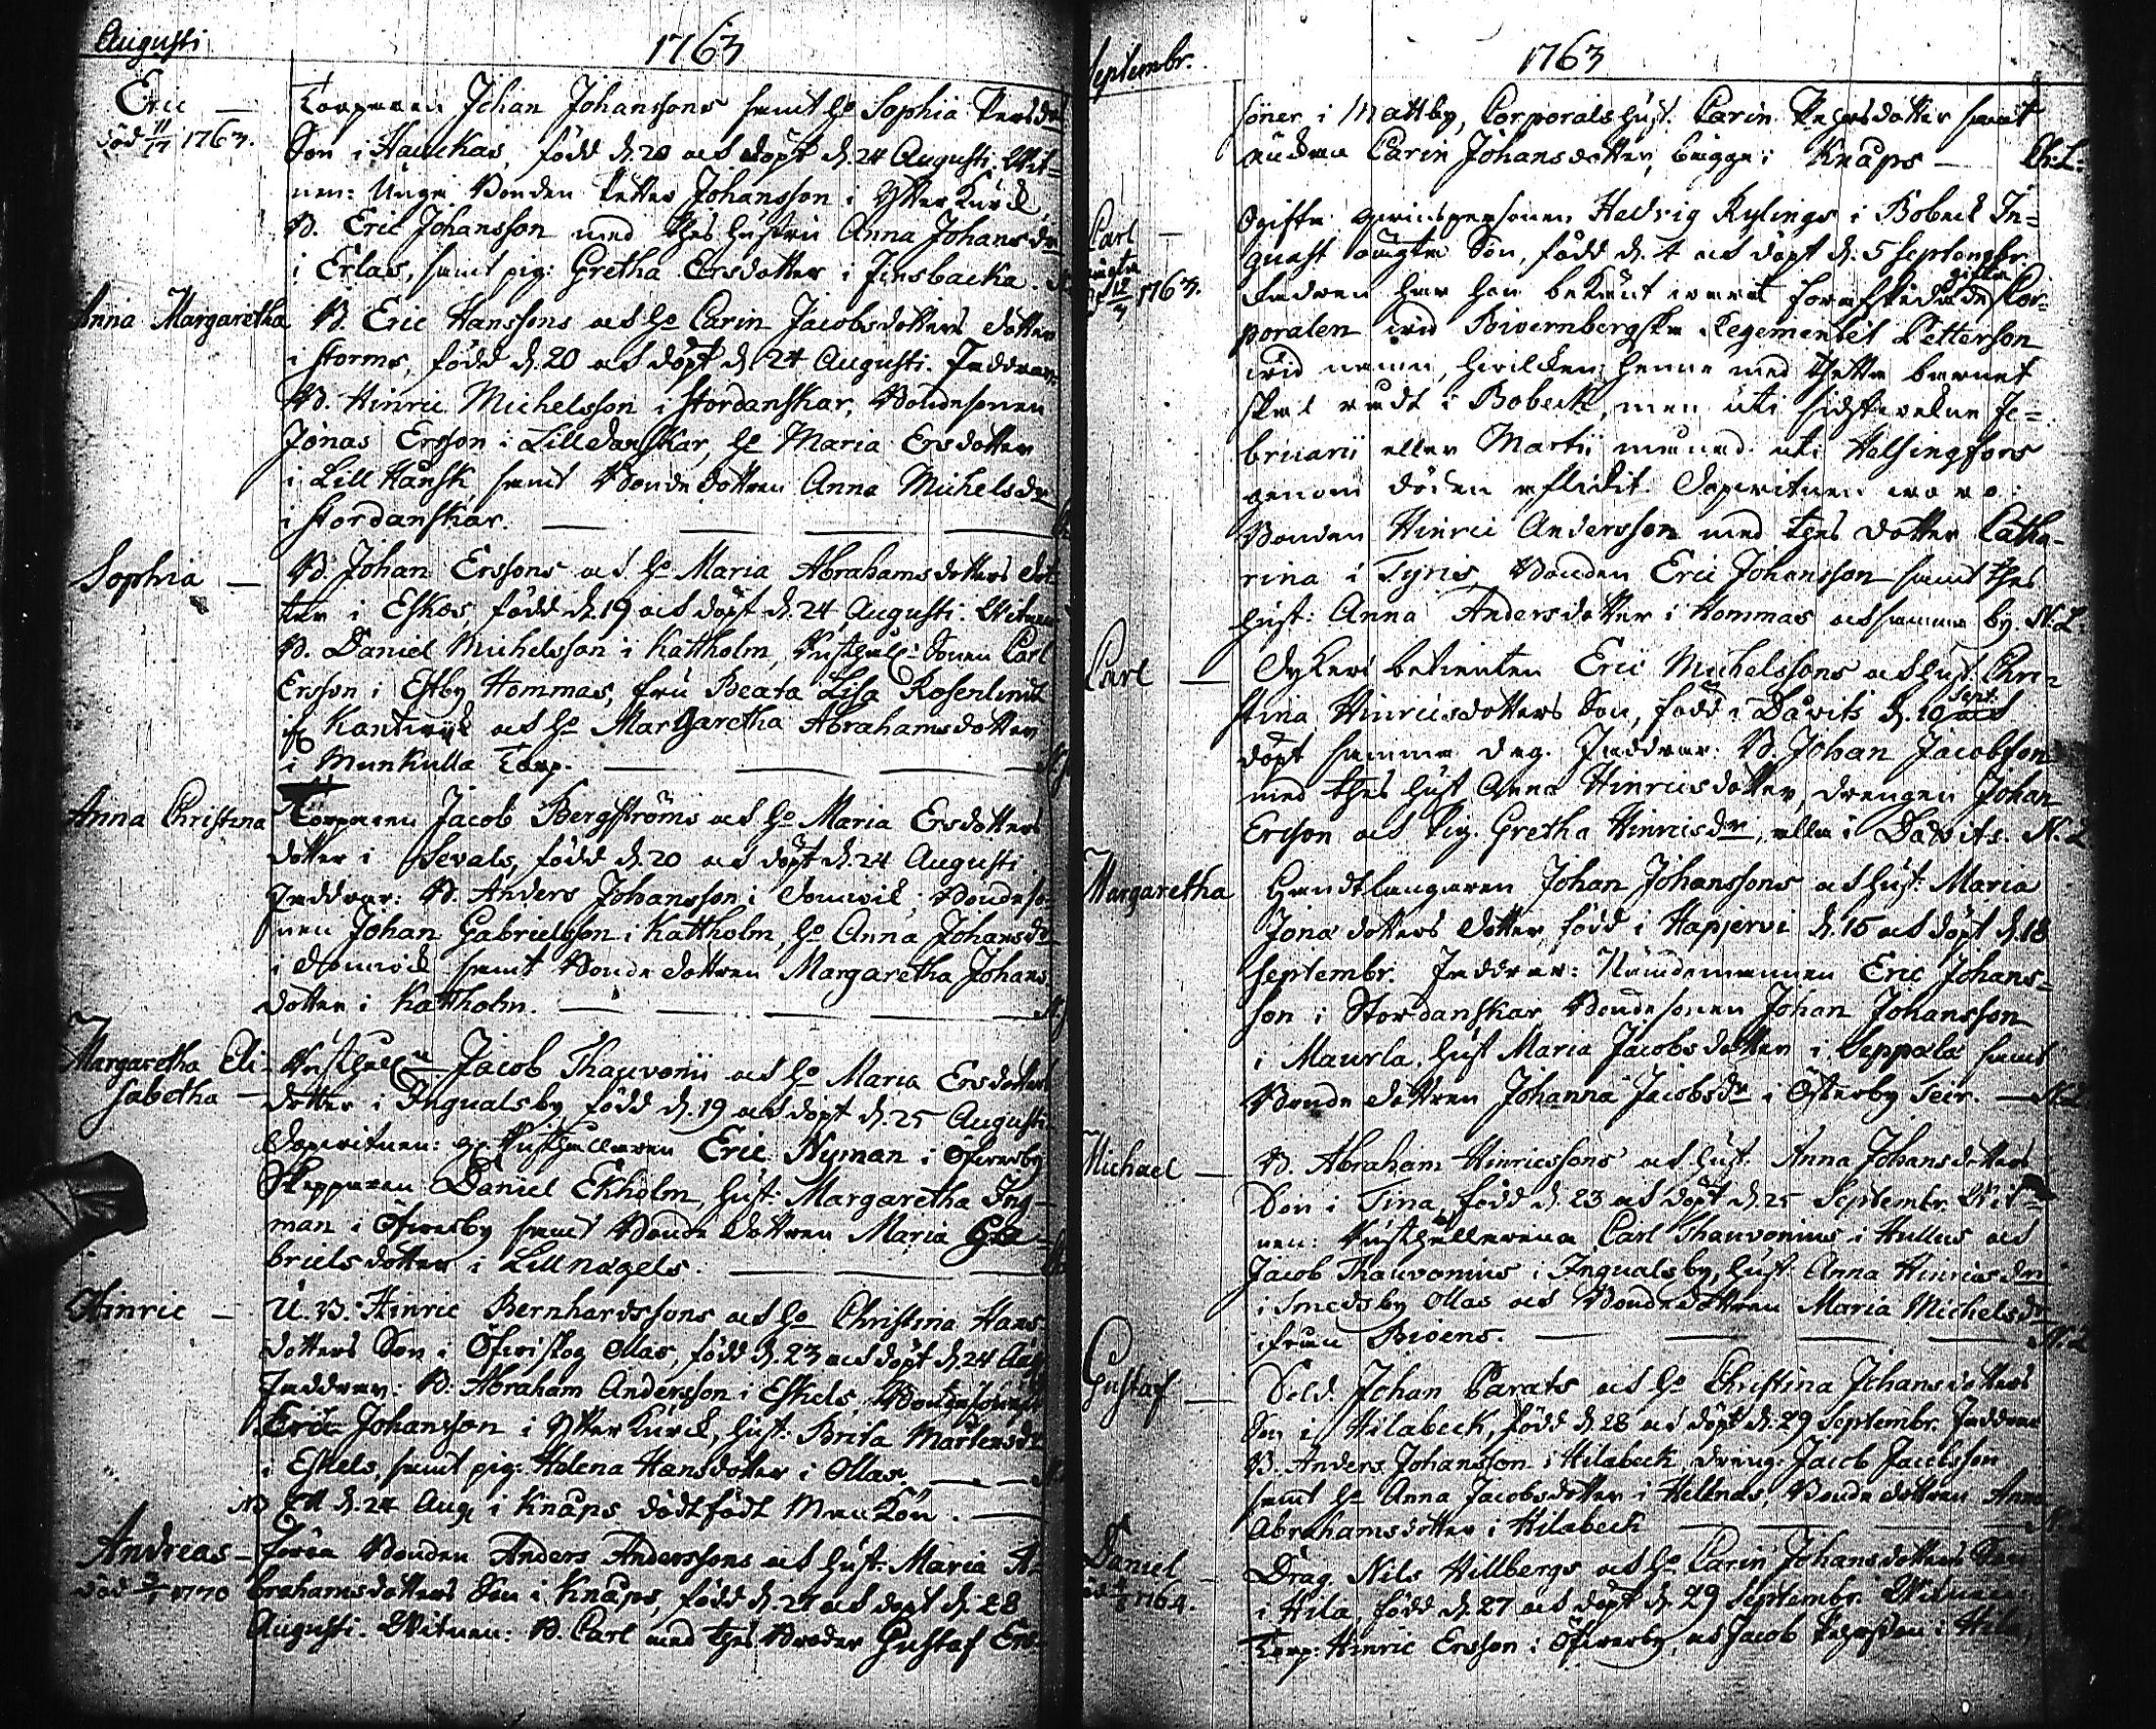 Augusti
1763
Eric —
död 11/17 1763.
Torparen Johan Johanssons samt h:o Sophia Persdr
Son i Hauckas, född d. 20 och döpt d. 24 Augusti. Wit=
nen: Unge Bonden Petter Johansson i Ytterkurck
B. Eric Johansson med thes hustru Anna Johansdr
i Erlas, samt pig: Gretha Ersdotter i Jensbacka.
Anna Margaretha
B. Eric Hanssons och h:o Carin Jacobsdotters dotter
i Storms, född d. 20 och döpt d. 24 Augusti. Faddrar:
B. Hinric Michelsson i Stordanskar, Bondesonen
Jonas Ersson i Lilldanskar, h:o Maria Ersdotter
i Lill Hansk samt Bondedottren Anna Michelsdr
i Stordanskar. — — — —
Sophia —
B. Johan Erssons och h:o Maria Abrahamsdotters dot
ter i Eskos, född d. 19 och döpt d. 24 Augusti. Witnen
B. Daniel Michelsson i Kattholm, Rusthåll: Sonen Carl
Ersson i Estby Hommas, fru Beata Lisa Rosenlindt
if. Kantwijk och h:o Margaretha Abrahamsdotter
i Munkulla Torp. — — — —
Anna Christina
Torparen Jacob Bergströms och h:o Maria Ersdotters
dotter i Sevals, född d. 20 och döpt d. 24 Augusti.
Faddrar: B. Anders Johansson i Domwik, Bondeso=
nen Johan Gabrielsson i Kattholm, h:o Anna Johansdr
i Domwik samt Bondedottren Margaretha Johans
dotter i Kattholm. — — — —
Margaretha Eli-
sabetha —
Rusthåll:n Jacob Thauvonii och h:o Maria Ersdotters
dotter i Ingvalsby, född d. 19 och döpt d. 25 Augusti.
Dopwitnen: Rusthållaren Eric Nyman i Öfwerby
Skepparen Daniel Ekholm, hust: Margaretha Ing-
man i Öfwerby samt Bondedottren Maria Ga-
brielsdotter i Lillnägels. — — —
Hinric —
U. B. Hinric Bernhardssons och h:o Christina Hans-
dotters Son i Öfwiskog Ollas, född d. 23 och döpt d. 24 Aug.
Faddrar: B. Abraham Andersson i Eskels, Bondesonen
Eric Johansson i Ytterkurck, hust: Brita Mårtensdr
i Eskels, samt pig: Helena Hansdotter i Ollas. — —
NB Ett d. 24 Aug. i Knäps dödfödt Mankön. —
Andreas —
död 3/1 1770
Förra Bonden Anders Anderssons och hust: Maria A=
brahamsdotters Son i Knäps, född d. 27 och döpt d. 28
Augusti. Witnen: B. Carl med thes Broder Gustaf Ers-
Septembr.
1763
söner i Mattby, Corporals hust. Carin Pehrsdotter samt
Carin Johansdotter, begge i Knäps — N:L.
Carl —
oägta
12/3 1763.
Ogifta qwinspersonen Hedvig Rylings i Bobeck In=
quast oägta Son, född d. 4 och döpt d. 5 Septembr.
Fadren har hon bekänt warit gifta Cor=
poralen wid Biwernbergska Regementet Petterson
wid namn, hwilken henne med thetta barnet
skal rådt i Bobeck, men uti sistwekne Fe=
bruarii eller Martii månad uti Helsingfors
genom döden afledit. Dopwitnen woro:
Bonden Hinric Andersson med thes dotter Catha-
rina i Tyris, Bonden Eric Johansson samt thes
hust: Anna Andersdotter i Hommas och samma by. N:L.
Carl —
betienten Eric Michelssons och hust. Chri=
stina Hinricsdotters Son, född i Davits d. 10 Sept.
döpt samma dag. Faddrar: B. Johan Jacobson
med thes hust Anna Hinricsdotter, drengen Johan
Ericson och Pig. Gretha Hinricsdr, alla i Davits. N:L
Margaretha
Handtlangaren Johan Johanssons och hust: Maria
Jonædotters dotter, född i Hapjerwi d. 15 och döpt d. 18
Septembr. Faddrar: Nämdemannen Eric Johans=
son i Stordanskar Bondesonen Johan Johansson
i Maurla, hust Maria Jacobsdotter i Seppälä samt
Bondedottren Johanna Jacobsdr i Österby Teir. — N:L
Michael —
B. Abraham Hinricssons och hust. Anna Johansdotters
Son i Tina, född d. 23 och döpt d. 25 Septembr. Wit=
nen: Rusthållarena Carl Thauvonius i Hullus och
Jacob Thauvonius i Ingvalsby, hust Anna Hinricsdr
i Smedsby Ollas och Bondedottren Maria Michelsdr
ifrån Bioens. — — — — N:L
Gustaf —
Sold. Johan Parats och h:o Christina Johansdotters
Son i Hilabeck, född d. 28 och döpt d. 29 Septembr. Faddrar
B. Anders Johansson i Hilabeck dreng. Jacob Jacobsson
samt h:o Anna Jacobsdotter i Hellnäs, Bondedottren Anna
Abrahamsdotter i Hilabeck — — — N:L
Daniel —
1764.
Drag. Nils Hillbergs och h:o Carin Johansdotters Son
i Hila, född d. 27 och döpt d. 29 Septembr. Witnen:
Torp: Hinric Ersson i Öfwerby, och Jacob Pehrsson i Hila,